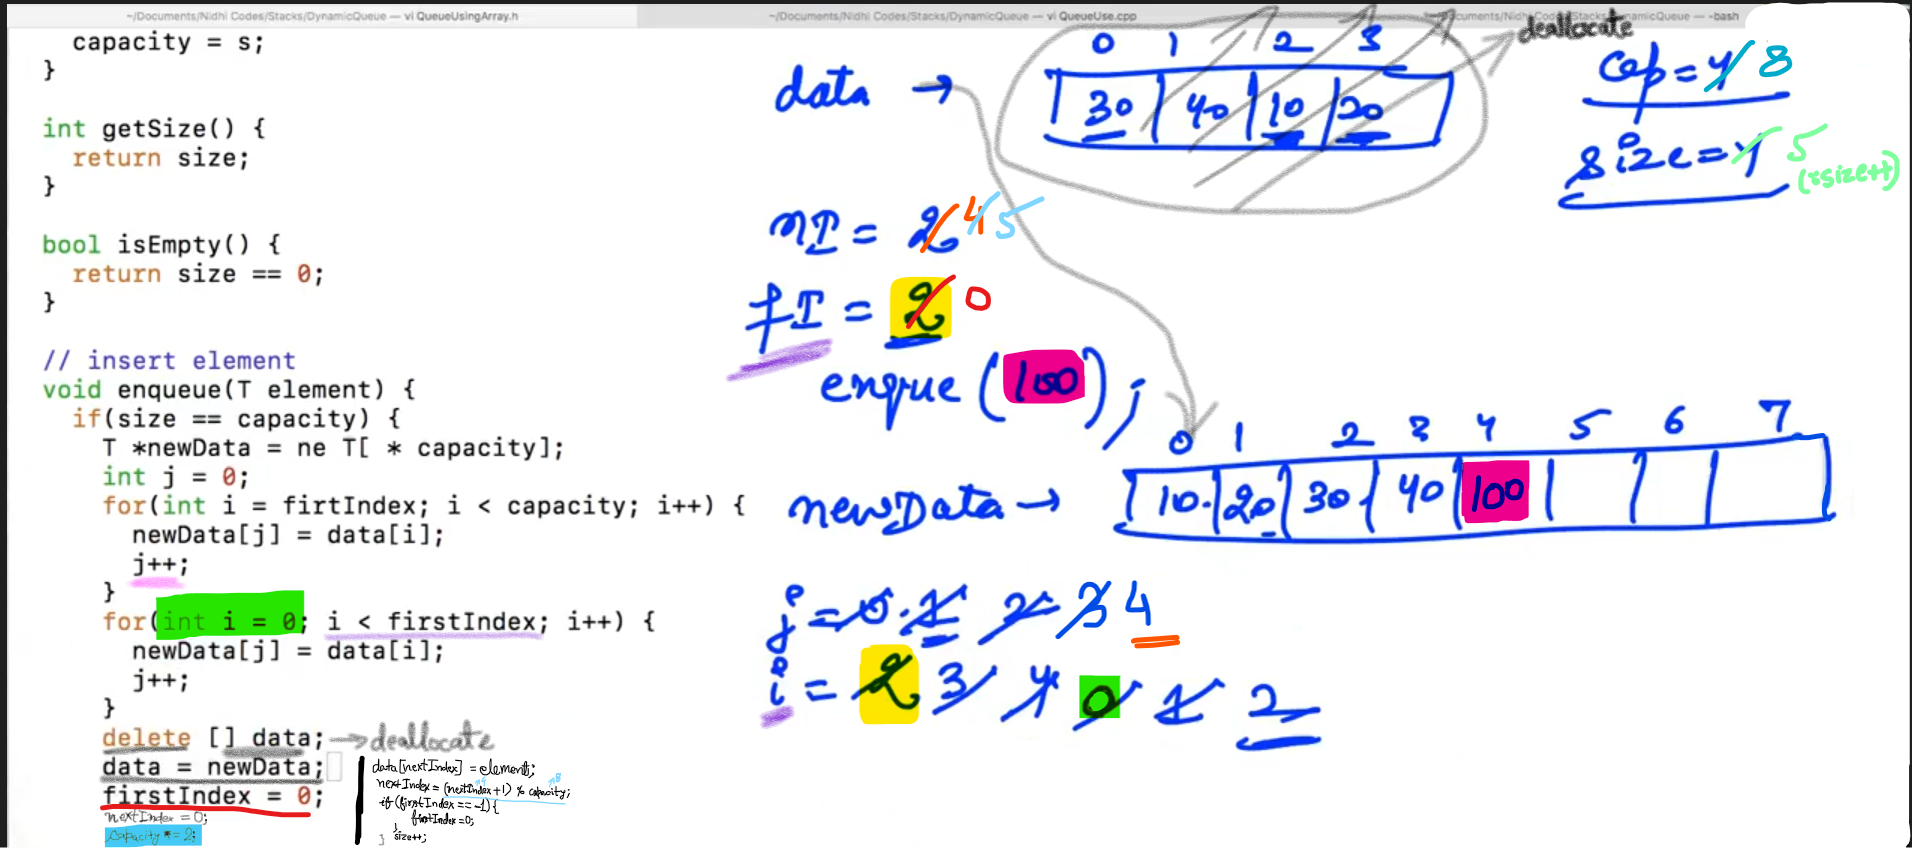 ~/Documents/Nidhi Codes/Stacks/DynamicQueue — vi QueueUsingArray.h
~/Documents/Nidhi Codes/Stacks/DynamicQueue — vi QueueUse.cpp
cuments/Nidhi Codes/Stacks/ namicQueue — -bash
capacity = s;
}
int getSize() {
return size;
}
bool isEmpty() {
return size == 0;
}
// insert element
void enqueue(T element) {
if(size == capacity) {
T *newData = ne T[ * capacity];
int j = 0;
for(int i = firtIndex; i < capacity; i++) {
newData[j] = data[i];
j++;
}
for(int i = 0; i < firstIndex; i++) {
newData[j] = data[i];
j++;
}
delete [] data; → deallocate
data = newData;
firstIndex = 0;
nextIndex = 0;
capacity *= 2;
data[nextIndex] = element;
nextIndex = (nextIndex+1) % capacity;
→4 →8
if (firstIndex == -1){
firstIndex=0;
}
size++;
}
deallocate
0 1 2 3
data → 30 40 10 20
cap = 4 8
size = 4 5
(size++)
nI = 2 4 5
fI = 2 0
enque (100);
0 1 2 3 4 5 6 7
newData → 10 20 30 40 100
j = 0 1 2 3 4
i = 2 3 4 0 1 2